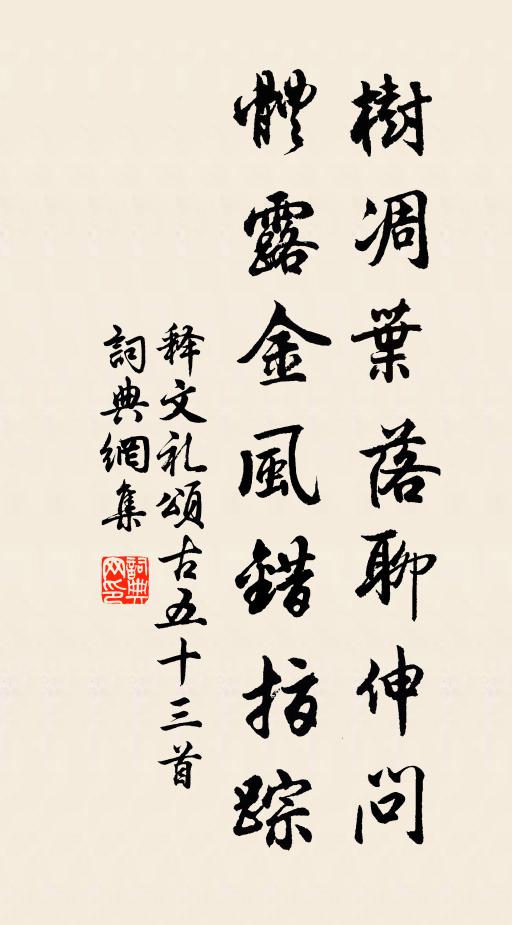 樹凋葉落聊伸問
體露金風錯指踪
释文礼頌古五十三首
詞典網集
詞典网印